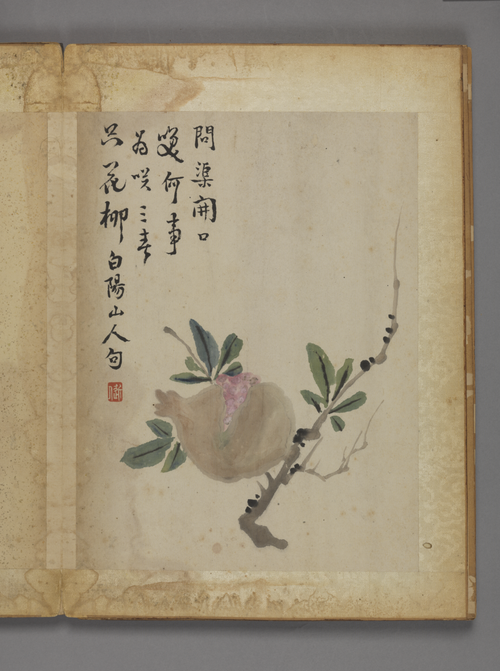 問渠開口
笑何事
為咲三春
只花柳白陽山人句